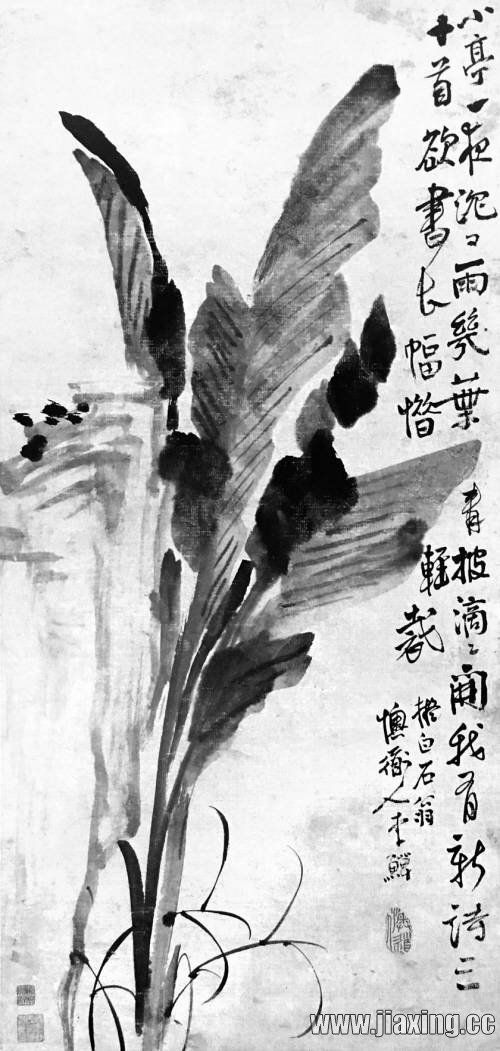 小亭一夜沉〻雨幾葉青披滴〻開我有新詩三
十首欲書長幅惜輕裁
擬白石翁
懊衜人李鱓
www.jiaxing.cc